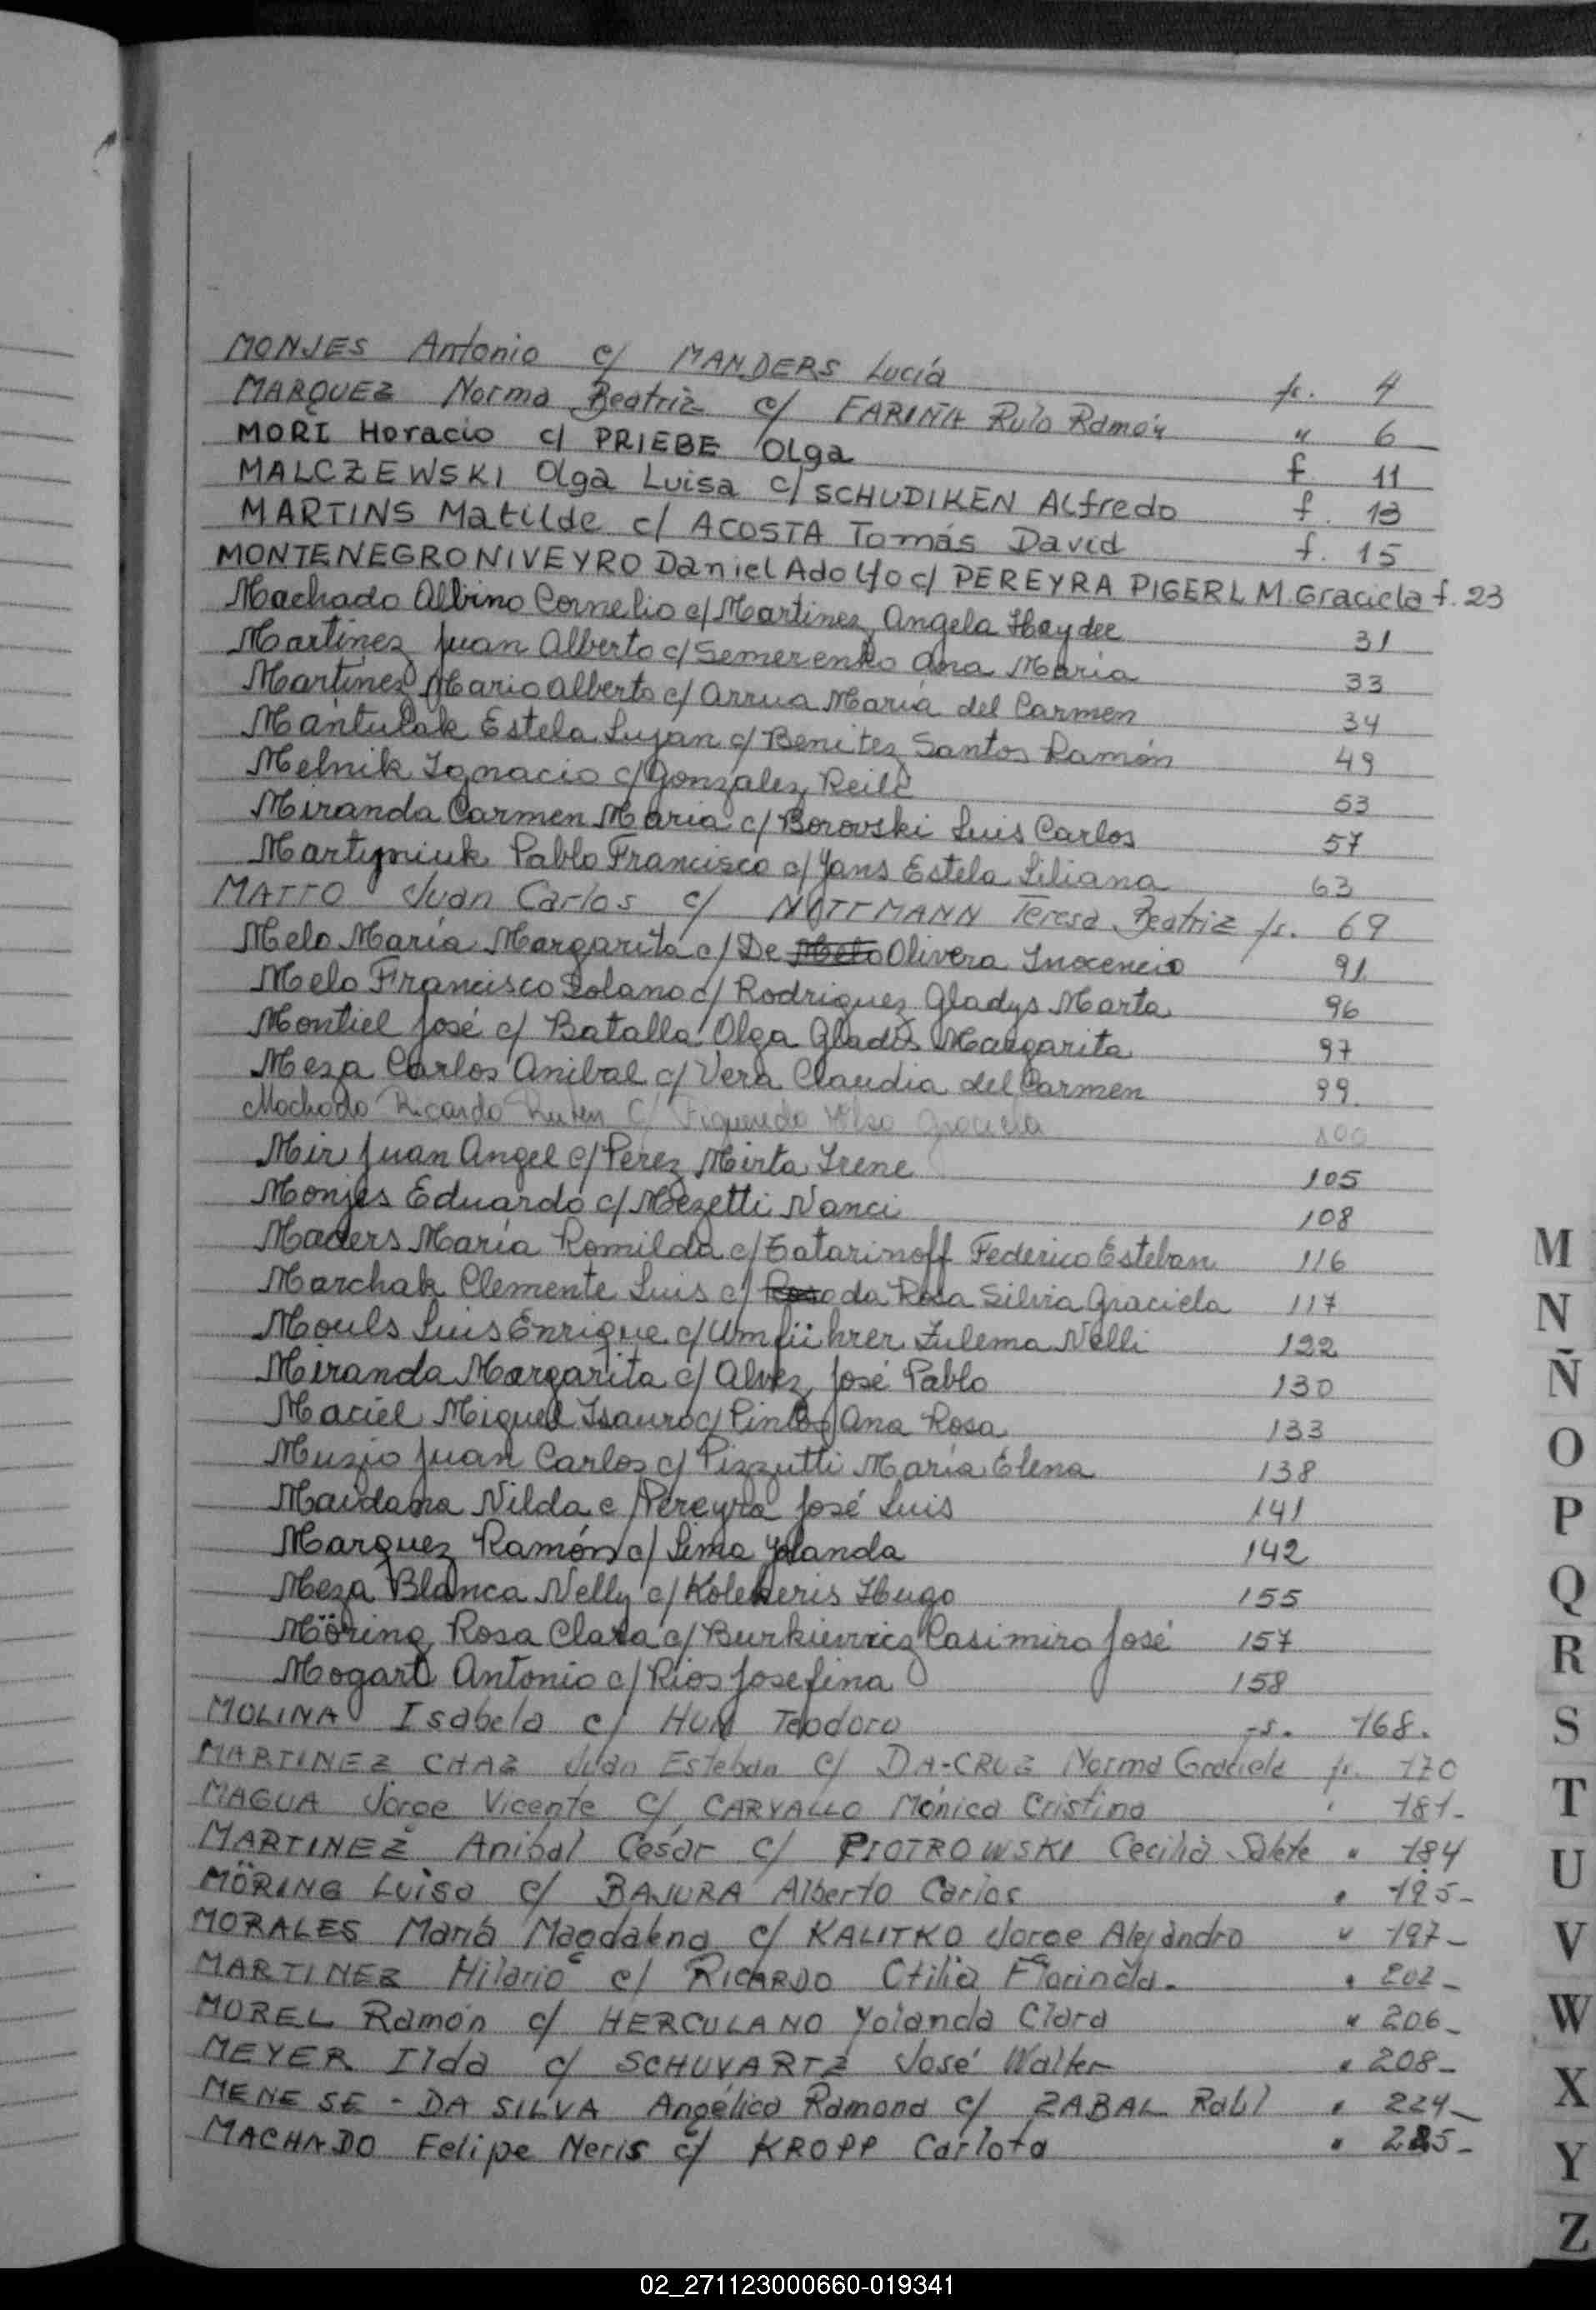 MONJES Antonio c/ MANDERS Lucía fs. 4
MARQUEZ Norma Beatriz c/ FARIÑA Rulo Ramón " 6
MORI Horacio c/ PRIEBE Olga f 11
MALCZEWSKI Olga Luisa c/ SCHUDIKEN Alfredo f. 13
MARTINS Matilde c/ ACOSTA Tomás David f. 15
MONTENEGRO NIVEYRO Daniel Adolfo c/ PEREYRA PIGERL M. Graciela f. 23
Machado Albino Cornelio c/ Martinez Angela Haydee 31
Martinez Juan Alberto c/ Semerenko Ana Maria 33
Martinez Mario Alberto c/ Arrua María del Carmen 34
Mantulak Estela Lujan c/ Benitez Santos Ramón 49
Melnik Ignacio c/ Gonzalez Reile 53
Miranda Carmen Maria c/ Borovski Luis Carlos 57
Martyniuk Pablo Francisco c/ Yans Estela Liliana 63
MATTO Juan Carlos c/ NOTTMANN Teresa Beatriz fs. 69
Melo María Margarita c/ De Melo Olivera Inocencio 91
Melo Francisco Solano c/ Rodriguez Gladys Marta 96
Montiel José c/ Batalla Olga Gladis Margarita 97
Meza Carlos Anibal c/ Vera Claudia del Carmen 99
Machado Ricardo Ruben c/ Figueredo Graciela 100
Mir Juan Angel c/ Perez Mirta Irene 105
Monjes Eduardo c/ Mezetti Nanci 108
Maders María Romilda c/ Tatarinoff Federico Esteban 116
Marchak Clemente Luis c/ Rosa da Rosa Silvia Graciela 117
Mouls Luis Enrique c/ Umführer Zulema Nelli 122
Miranda Margarita c/ Alvez José Pablo 130
Maciel Miguel Isauro c/ Pintos Ana Rosa 133
Muzio Juan Carlos c/ Pizzutti María Elena 138
Maidana Nilda c/ Pereyra José Luis 141
Marquez Ramón c/ Lima Yolanda 142
Meza Blanca Nelly c/ Hugo 155
Möring Rosa Clara c/ Burkievicz Casimiro José 157
Mogart Antonio c/ Rios Josefina 158
MOLINA Isabela c/ HUN Teodoro fs. 168.
MARTINEZ CHAZ Juan Esteban c/ DA-CRUZ Norma Graciela fs. 170
MAGUA Jorge Vicente c/ CARVALLO Mónica Cristina " 181-
MARTINEZ Anibal César c/ PIOTROWSKI Cecilia Salete " 184
MÖRING Luisa c/ BAJURA Alberto Carlos " 195-
MORALES María Magdalena c/ KALITKO Jorge Alejandro " 197-
MARTINEZ Hilario c/ RICARDO Otilia Florinda. " 202-
MOREL Ramón c/ HERCULANO Yolanda Clara " 206-
MEYER Ilda c/ SCHUVARTZ José Walter " 208-
MENESE - DA SILVA Angélica Ramona c/ ZABAL Raúl " 224-
MACHADO Felipe Neris c/ KROPP Carlota " 225-
M
N
Ñ
O
P
Q
R
S
T
U
V
W
X
Y
Z
02_271123000660-019341